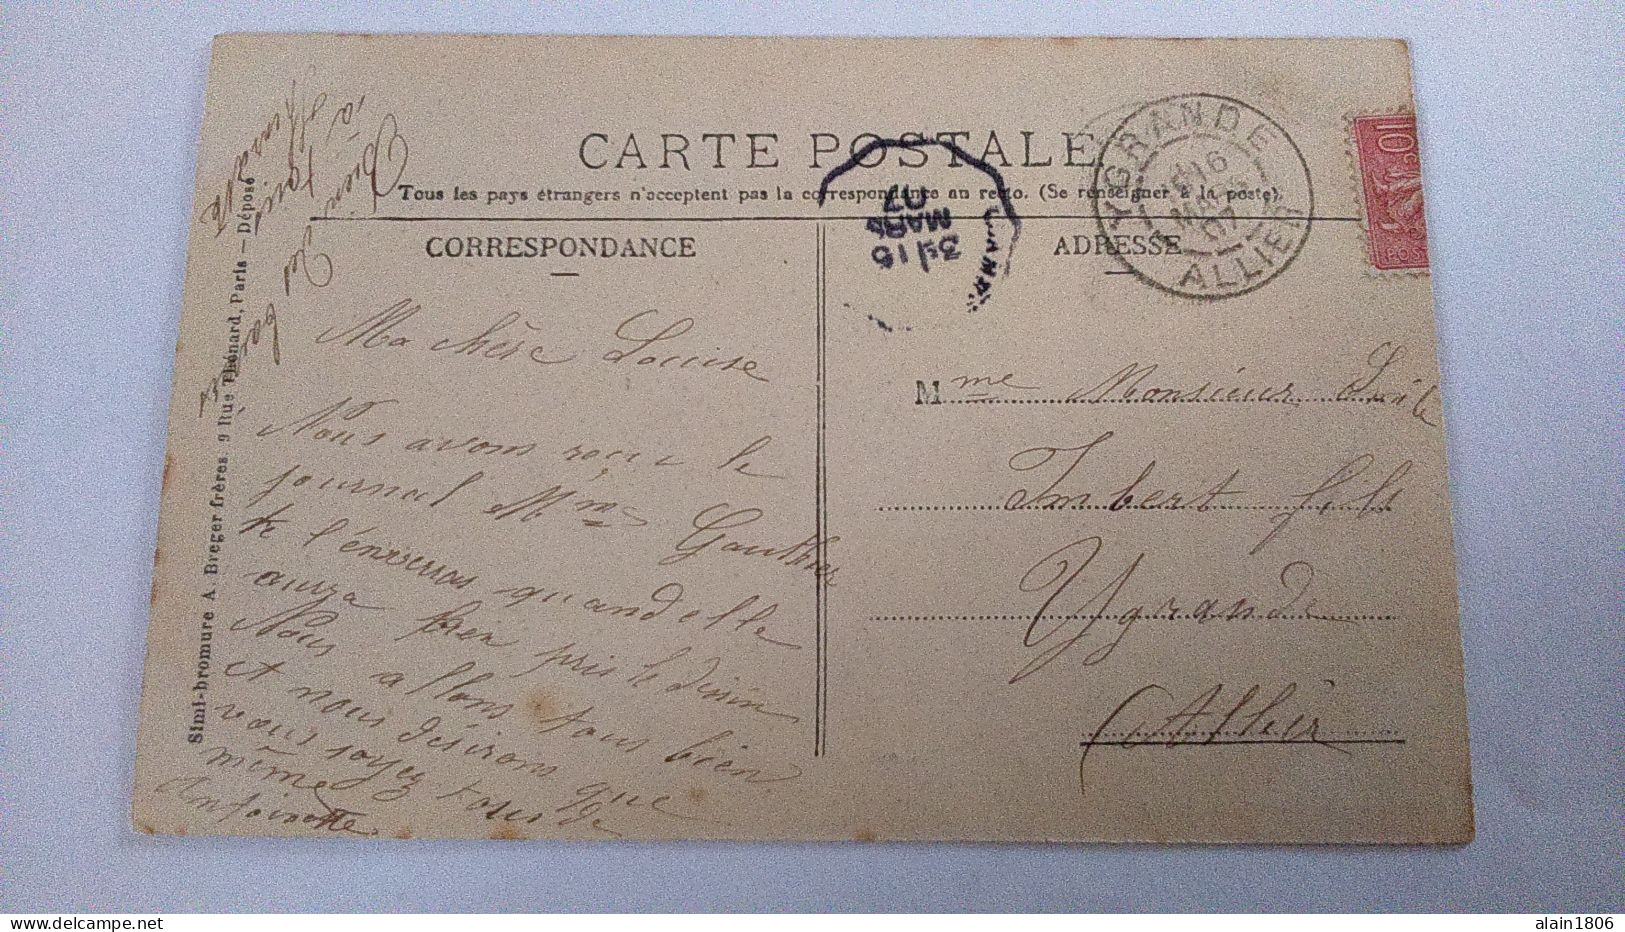 CARTE POSTALE
Tous les pays étrangers n'acceptent pas la correspondance au recto. (Se renseigner à la poste).
CORRESPONDANCE
ADRESSE
YGRANDE
16
MARS
07
ALLIER
3E 16
MARS
07
10c
POS
Simi-bromure A. Breger frères. 9 Rue Thénard, Paris — Déposé
Ma chère Louise
Nous avons reçu le
journal Mme Gauthier
te l'enverras quand elle
aura bien pris le dessin
Nous allons tous bien
et nous désirons que
vous soyez tous de
même
Antoinette.
Bien
à
Mme Monsieur
Imbert fils
Ygrande
Allier
alain1806